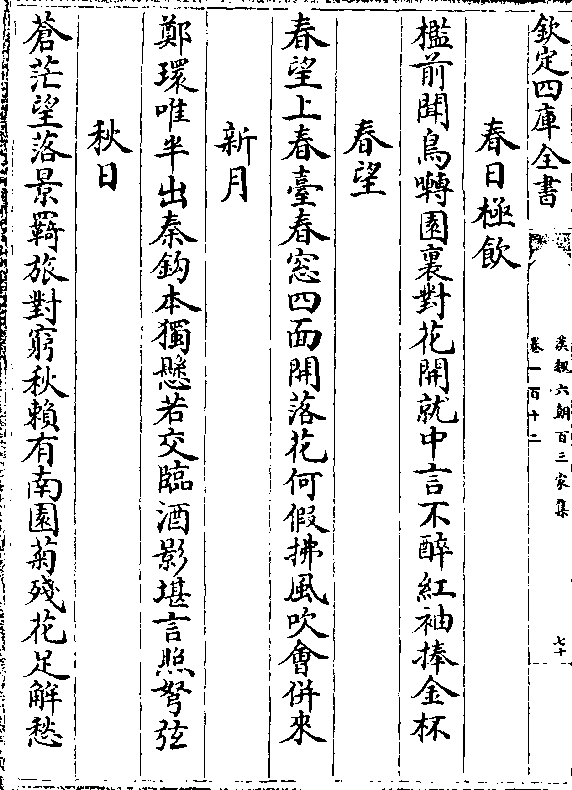 欽定四庫全書
漢魏六朝百三家集
卷一百十二
七十
春日極飲
檻前聞鳥囀園裏對花開就中言不醉紅袖捧金杯
春望
春望上春臺春窓四面開落花何假拂風吹會併來
新月
鄭環唯半出秦鈎本獨懸若交臨酒影堪言照弩弦
秋日
蒼茫望落景羇旅對窮秋賴有南園菊殘花足解愁